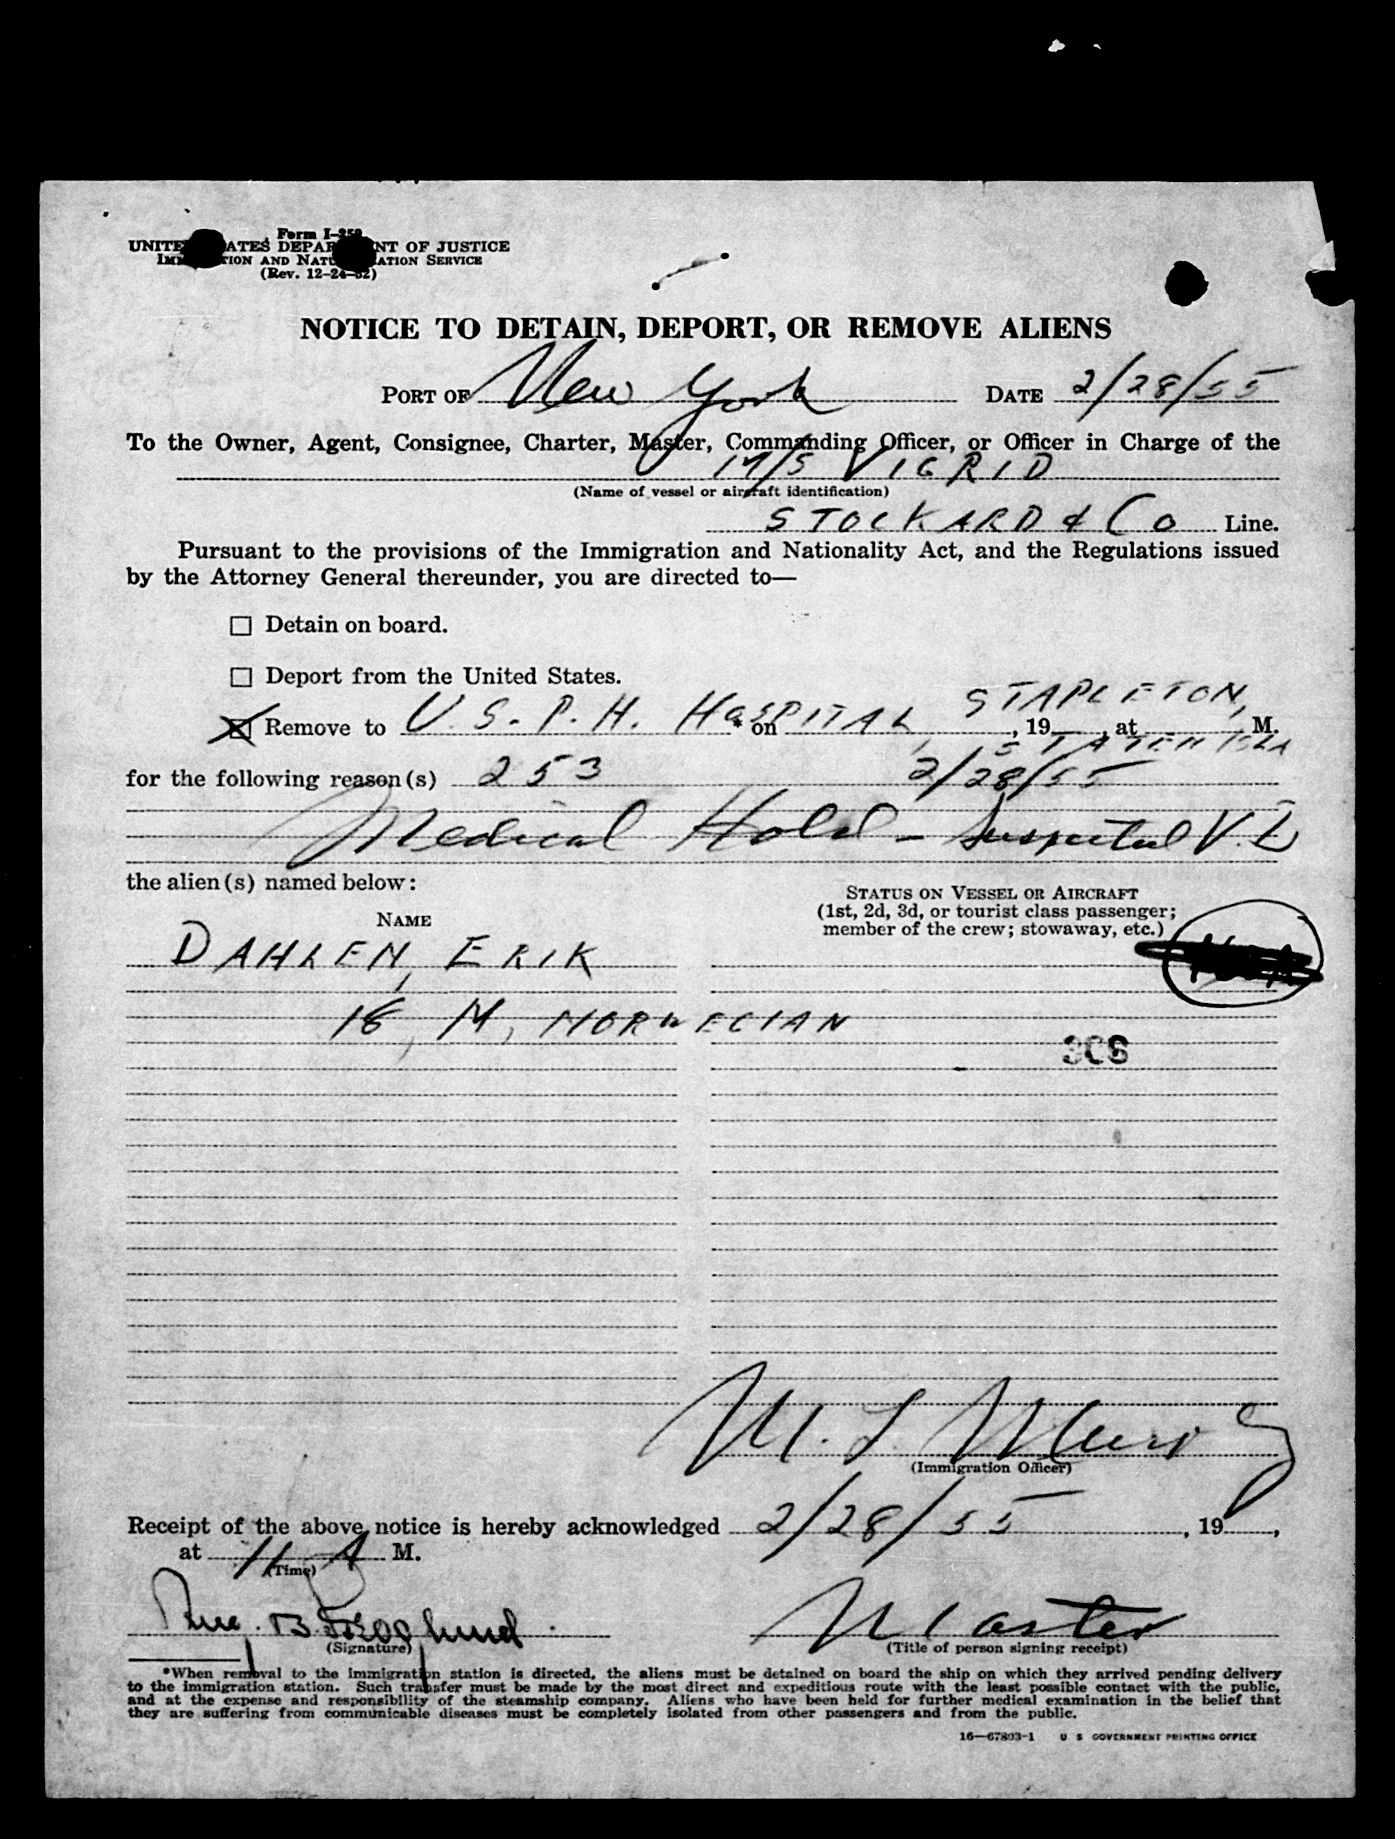 Form I-259
UNITED STATES DEPARTMENT OF JUSTICE
IMMIGRATION AND NATURALIZATION SERVICE
(Rev. 12-24-52)
NOTICE TO DETAIN, DEPORT, OR REMOVE ALIENS
PORT OF New York DATE 2/28/55
To the Owner, Agent, Consignee, Charter, Master, Commanding Officer, or Officer in Charge of the
M/S VIGRID
(Name of vessel or aircraft identification)
STOCKARD & Co Line.
Pursuant to the provisions of the Immigration and Nationality Act, and the Regulations issued
by the Attorney General thereunder, you are directed to—
Detain on board.
Deport from the United States.
STAPLETON,
Remove to U.S.P.H. HOSPITAL, * on , 19 , at M.
STATEN ISLA
for the following reason(s) 253 2/28/55
Medical Hold - Suspected V.D
the alien(s) named below:
STATUS ON VESSEL OR AIRCRAFT
(1st, 2d, 3d, or tourist class passenger;
member of the crew; stowaway, etc.)
NAME
DAHLEN, ERIK
18, M, NORWEGIAN
306
M. L.
(Immigration Officer)
Receipt of the above notice is hereby acknowledged 2/28/55 , 19 ,
at 11 A M.
(Time)
Master
(Signature) (Title of person signing receipt)
*When removal to the immigration station is directed, the aliens must be detained on board the ship on which they arrived pending delivery
to the immigration station. Such transfer must be made by the most direct and expeditious route with the least possible contact with the public,
and at the expense and responsibility of the steamship company. Aliens who have been held for further medical examination in the belief that
they are suffering from communicable diseases must be completely isolated from other passengers and from the public.
16—67893-1 U S GOVERNMENT PRINTING OFFICE